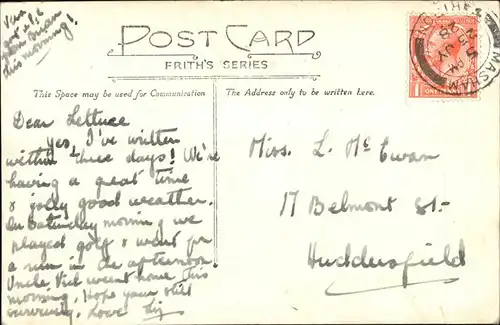 POST CARD
FRITH'S SERIES
This Space may be used for Communication
The Address only to be written Here.
this morning!
Dear Lettuce
Yes, I've written
within three days! We're
having a great time
& jolly good weather.
On Saturday morning we
played golf & went for
a run in the afternoon.
Uncle Vict went home this
morning. Hope your still
surviving. Love Liz
Miss. L. McEwan
17 Belmont St-
Huddersfield
MASHAM